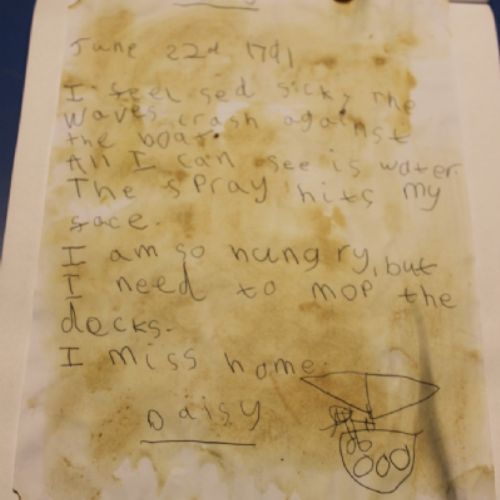 June 22nd 17d1
I feel sed sick, the
waves crash against
the boat.
All I can see is water.
The spray hits my
face.
I am so hungry, but
I need to mop the
decks.
I miss home.
Daisy